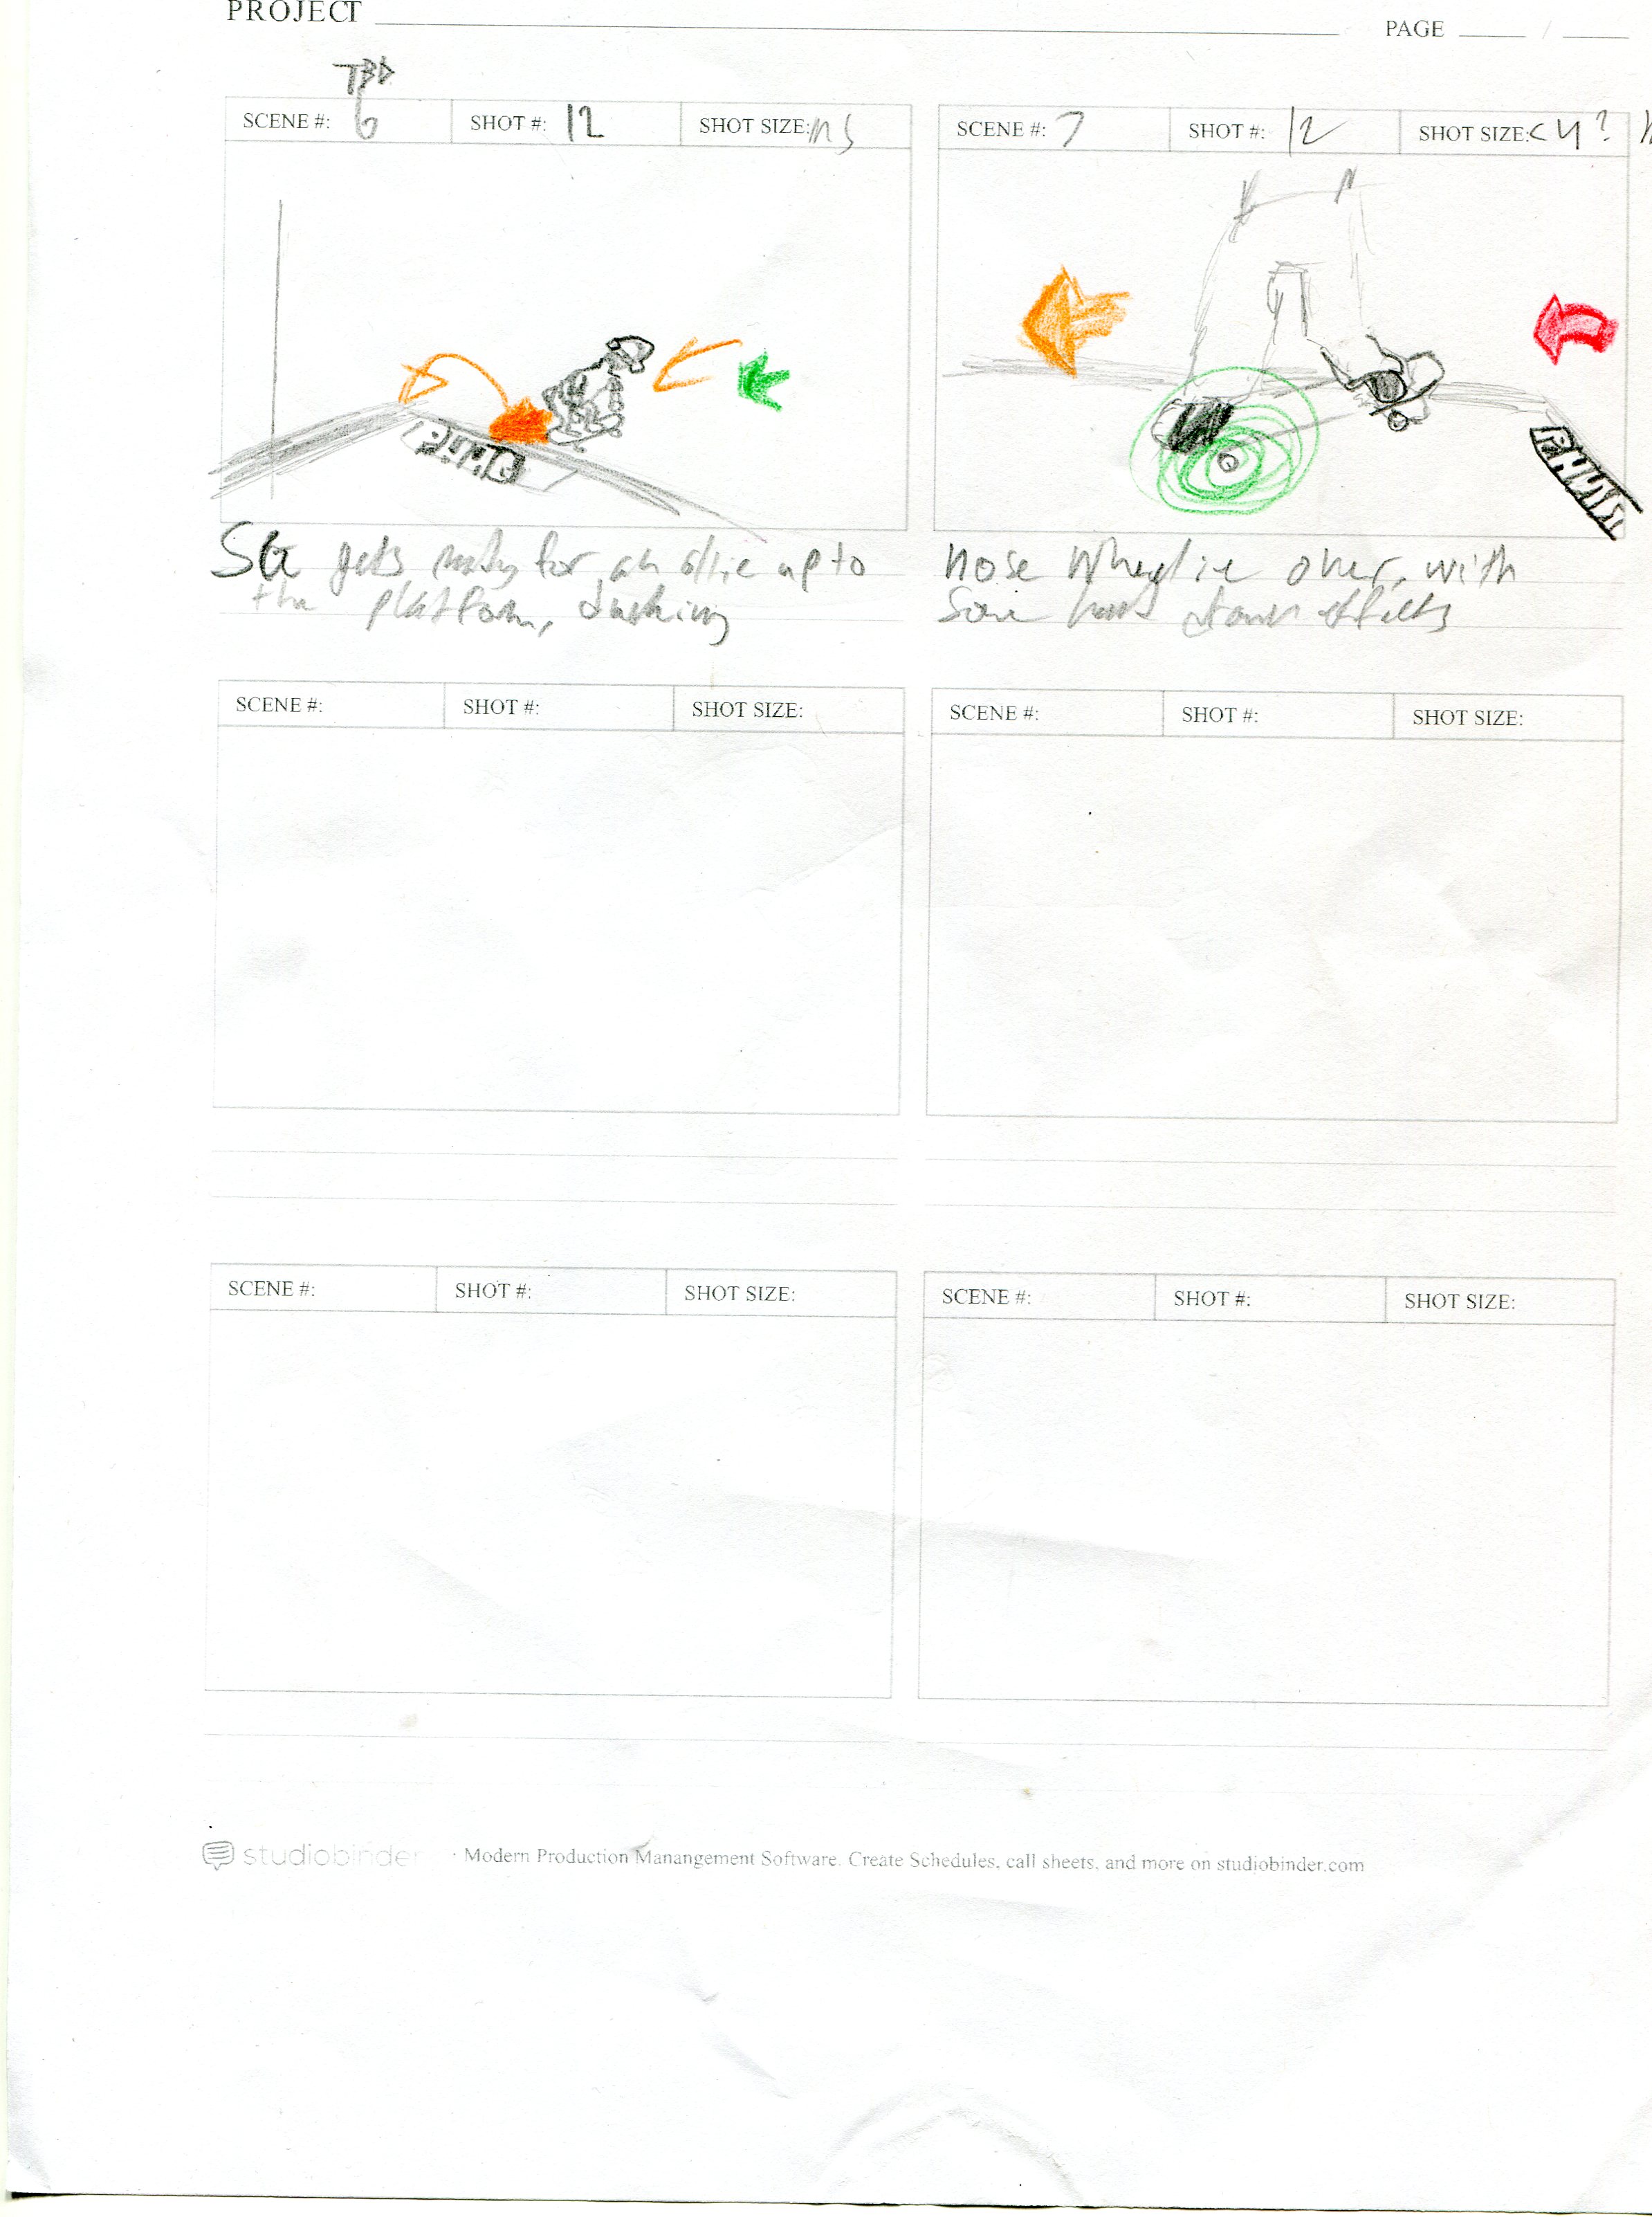 PROJECT
PAGE /
TBD
SCENE #: 6 SHOT #: 12 SHOT SIZE: MS
SCENE #: 7 SHOT #: 12 SHOT SIZE: CU?
SG gets ready for an ollie up to
the platform, dashing
Nose Wheelie over, with
some down effects
SCENE #: SHOT #: SHOT SIZE:
SCENE #: SHOT #: SHOT SIZE:
SCENE #: SHOT #: SHOT SIZE:
SCENE #: SHOT #: SHOT SIZE:
studiobinder · Modern Production Manangement Software. Create Schedules, call sheets, and more on studiobinder.com